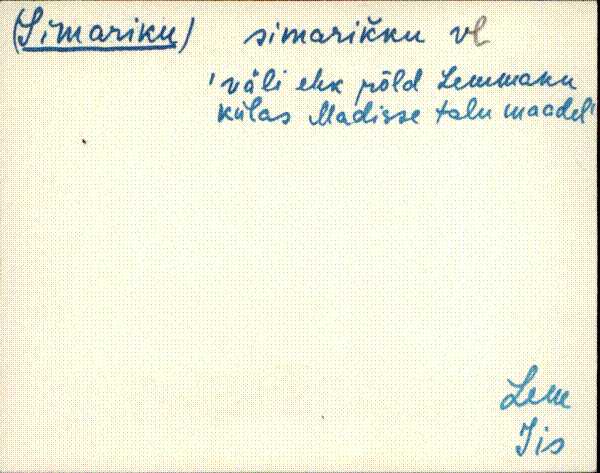 (Simariku) simarikku vl
'väli ehk põld Lemmaku
külas Madisse talu maadel'
Lem
Iis